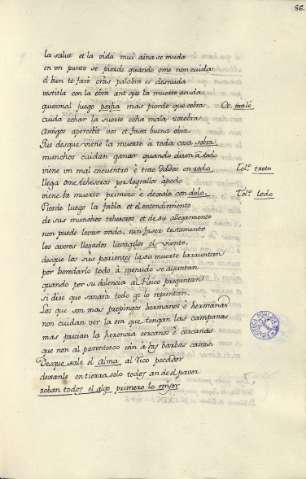 82.
la salut et la vida mui aina se muda
en un punto se pierde quando ome non cuida
el bien te faré cras palabra es desnuda
vestirla con la obra ant que la muerte acuda
quien mal juego porfia mas pierde que cobra Or. malo
cuida echar la suerte echa mala zozobra
Amigos apercebit vos et facer buena obra
Pus desque viene la muerte à toda cosa sobra
munchos cuidan ganar quando dicen à todo
viene un mal encuentro è trae dados en rodo Tol.º
llega ome thesoros por
viene la muerte primero è dexado con lodo Tol.º lodo
Pierde luego la fabla et el entendimiento
de sus munchos thesoros et de su allegamiento
non puede levar nada nin facer testamento
los averes llegados lievagelos el viento,
desque los sus parientes la su muerte barruntan
por heredarlo todo à menudo se ayuntan
quando por su dolencia al Fisico preguntan
si dice que sanará todo ge lo repuntan.
Los que son mas propincos hermanos è hermanas
non cuidan ver la ora que tangan las campanas
mas precian la herencia cercanos è
que non al parentesco nin à las barbas canas
Desque sale el alma al rico pecador
dexanlo en tierra solo todos an de el pavor
roban todos el algo primero lo mejor